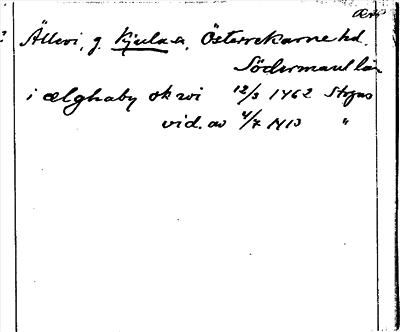 Ällevi, g. Kjula sn, Österrekarne hd.
Södermanl län
i ælghaby ok wi 12/3 1462 Styffes
vid. av 4/7 1413 "